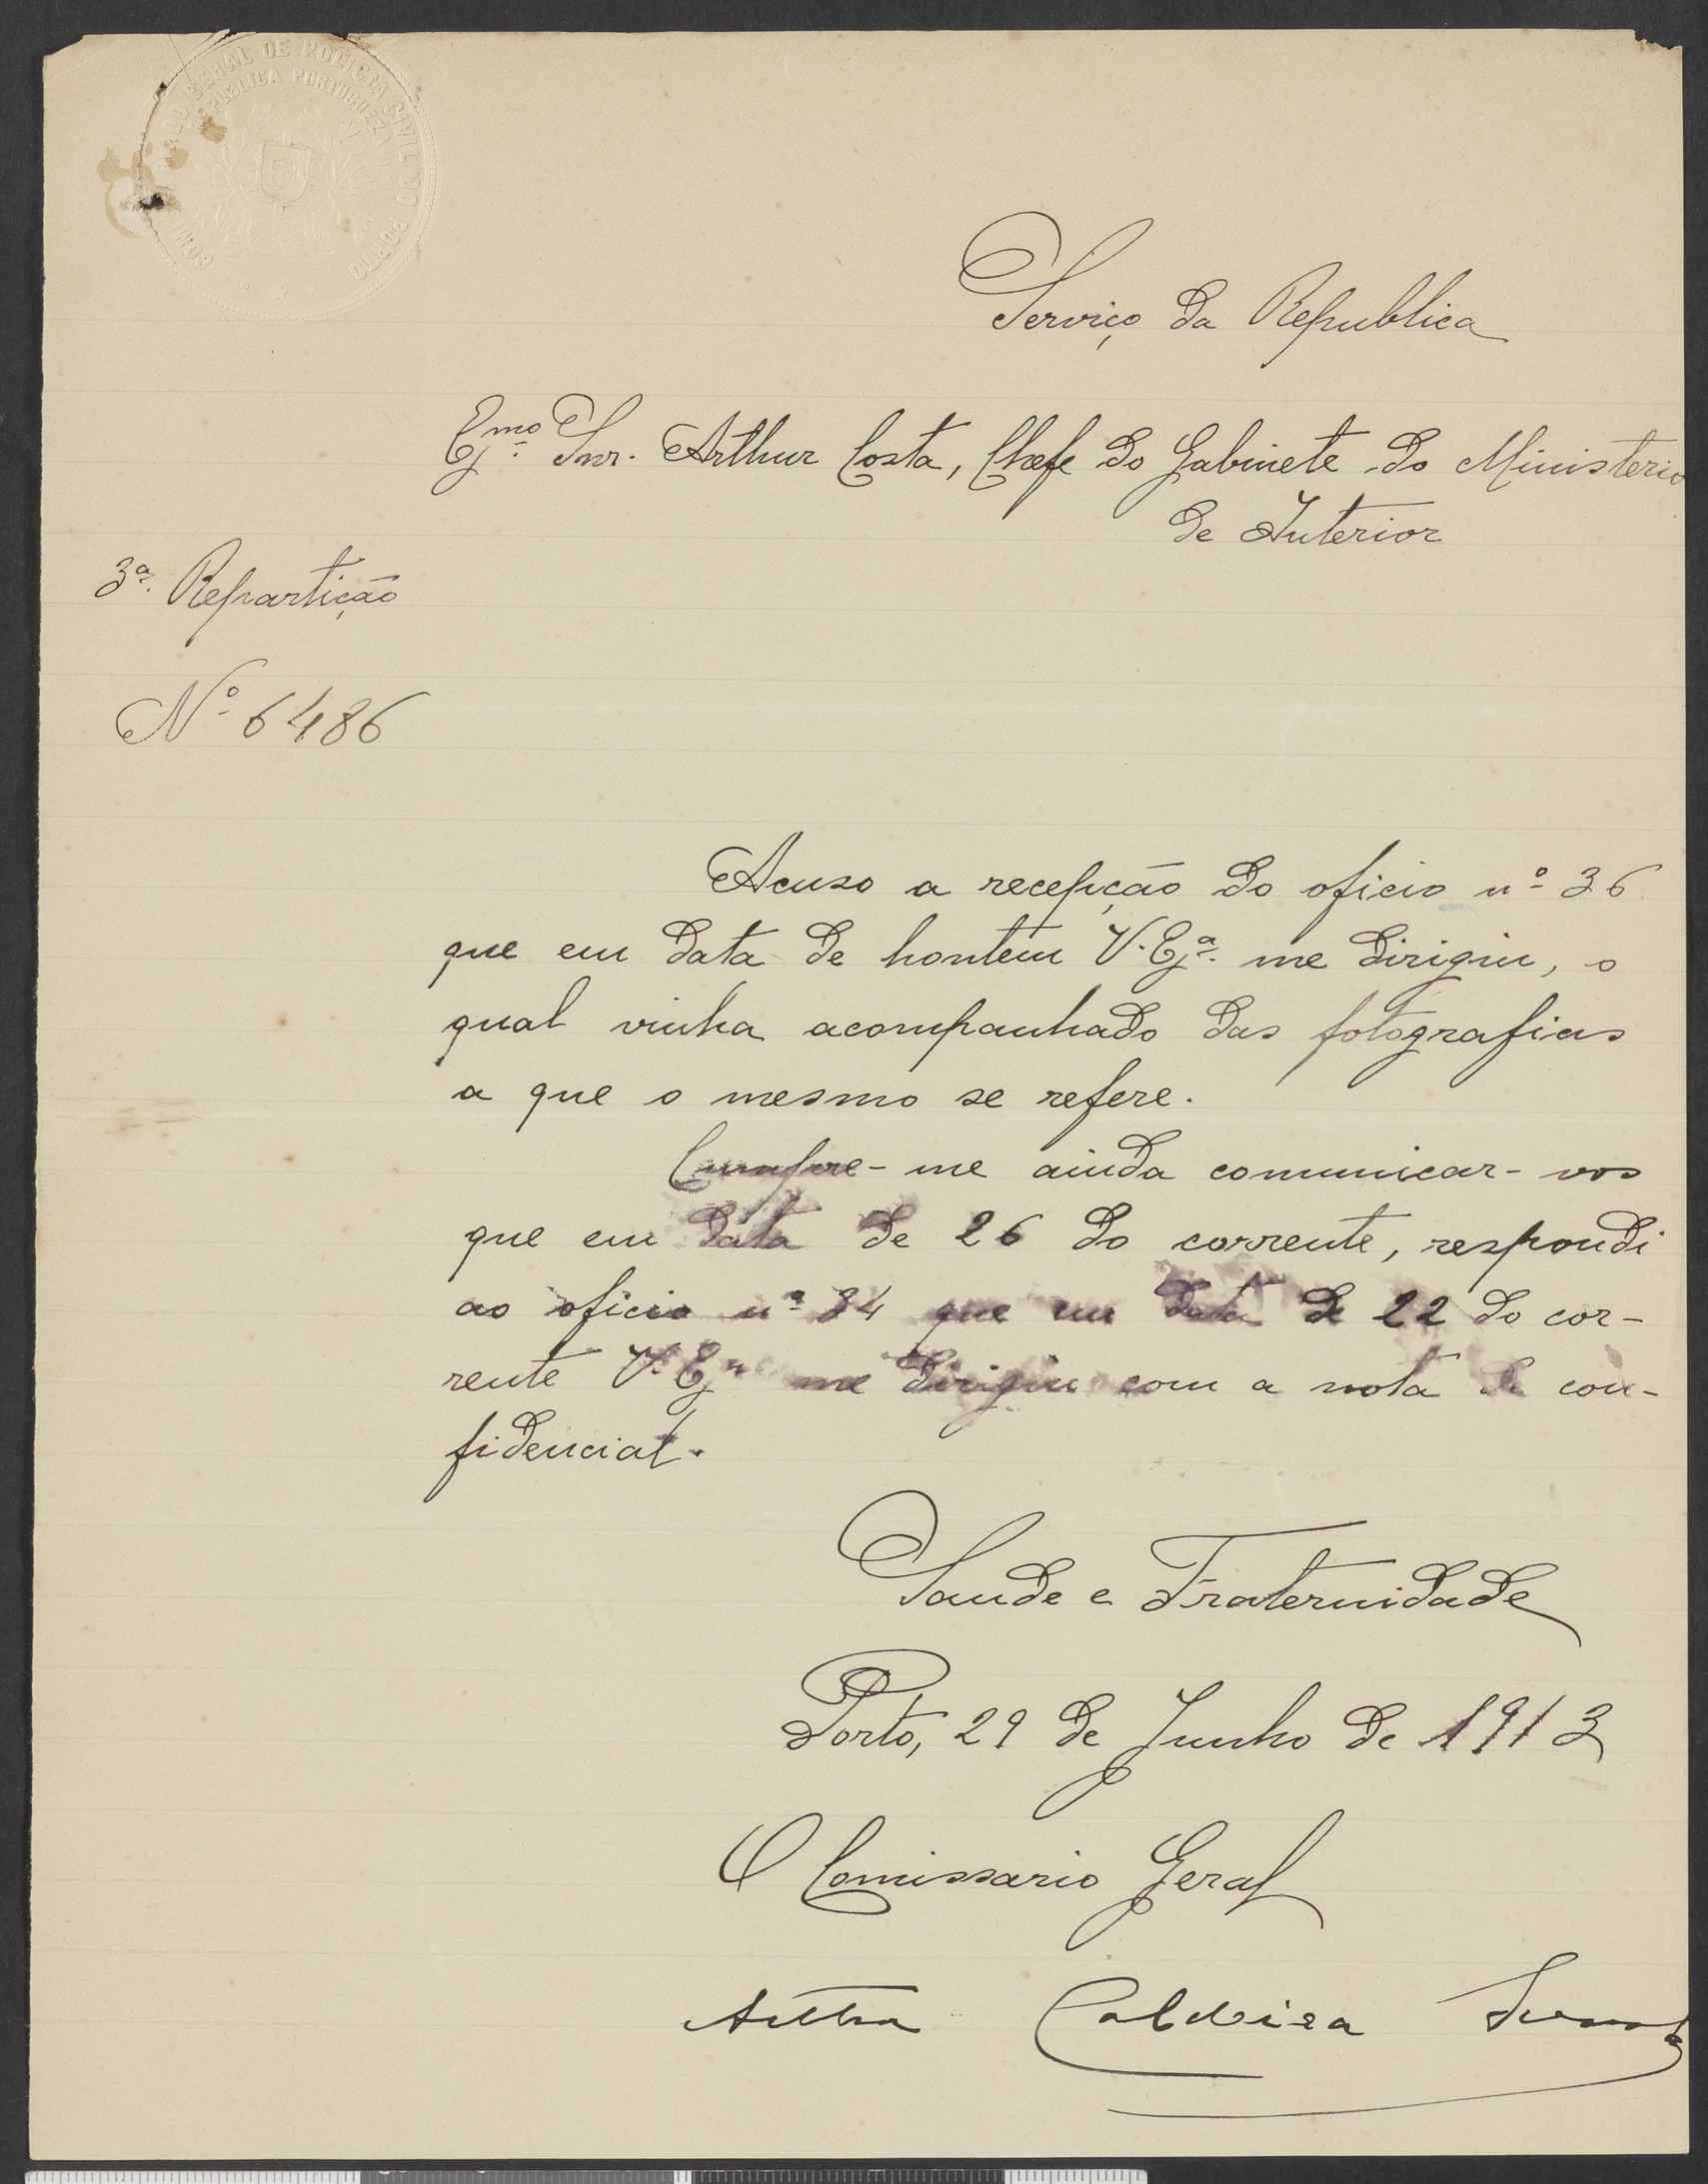 COMISSARIADO GERAL DE POLICIA CIVIL DO PORTO
REPUBLICA PORTUGUEZA
Serviço da Republica
Exmo Snr. Arthur Costa, Chefe do Gabinete do Ministerio
de Interior
3ª Repartição
Nº 6486
Acuso a recepção do oficio nº 36
que em data de hontem V. Exª me dirigiu, o
qual vinha acompanhado das fotografias
a que o mesmo se refere.
Cumpre-me ainda comunicar-vos
que em data de 26 do corrente, respondi
ao oficio nº 34 que em data de 22 do cor-
rente V. Exª me dirigiu com a nota de con-
fidencial.
Saude e Fraternidade
Porto, 29 de Junho de 1913
O Comissario Geral
Caldeira